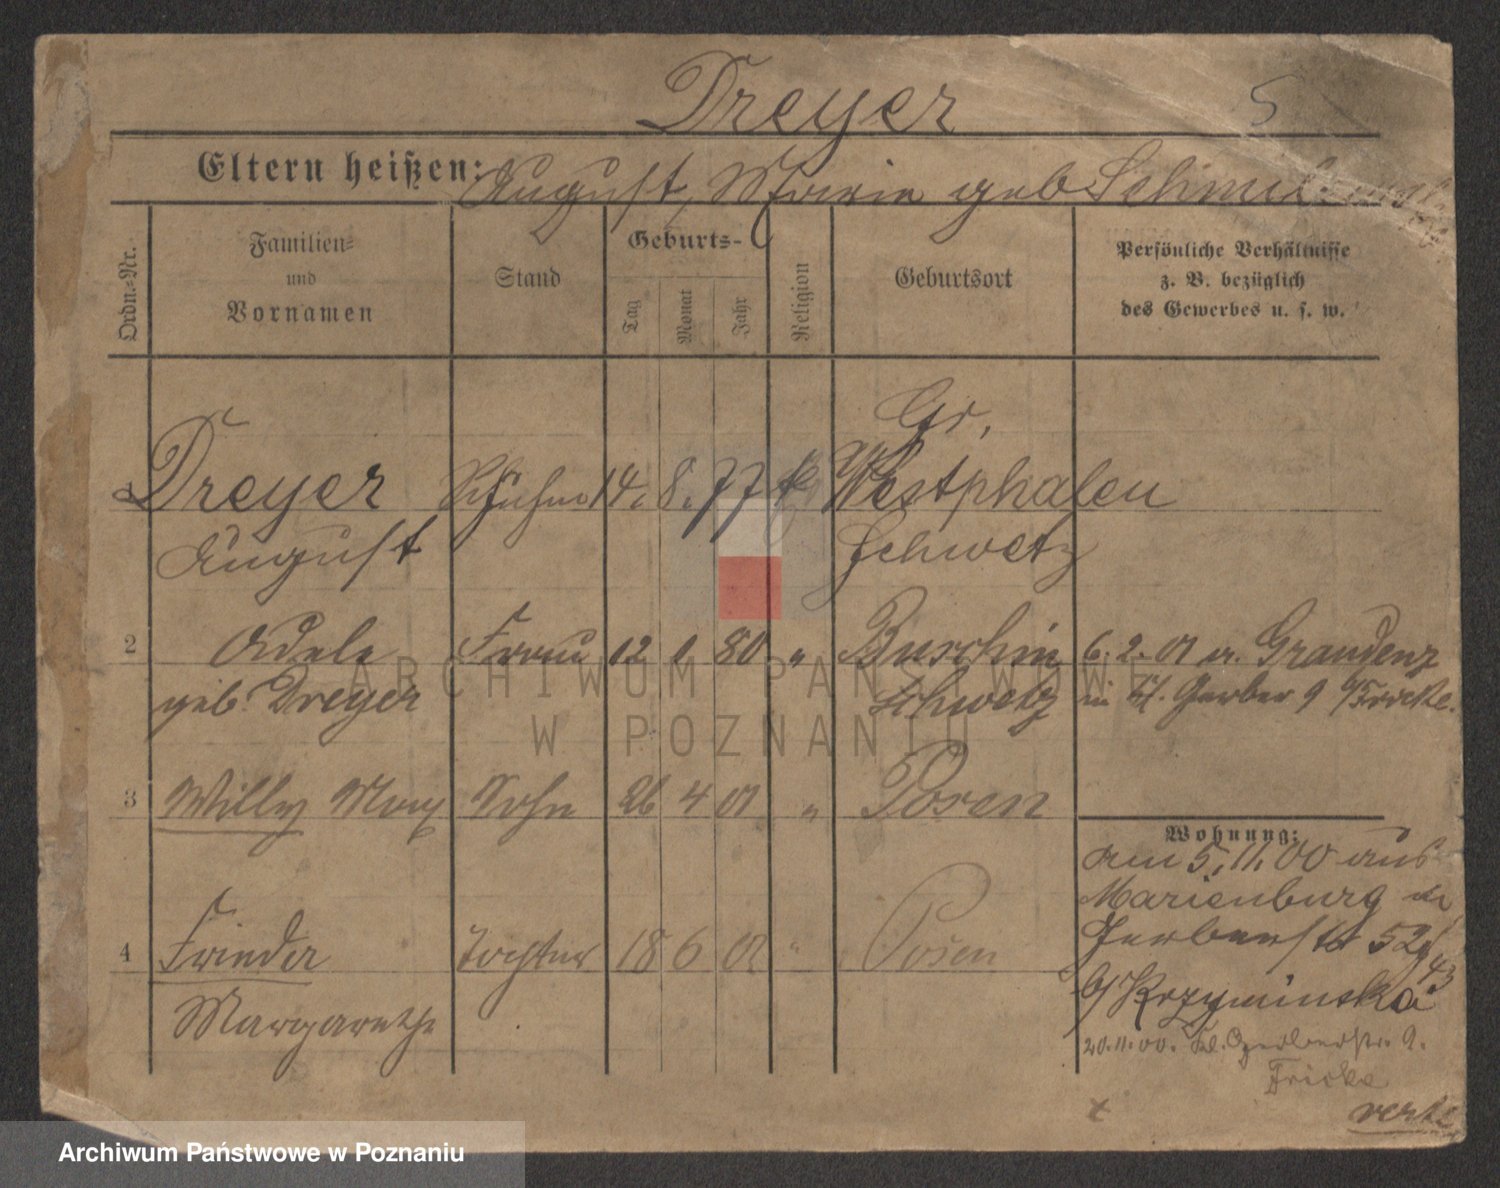 Dreyer 5
Eltern heißen: August, Marie geb
Ordn.-Nr.
Familien-
und
Vornamen
Stand
Geburts-
Tag
Monat
Jahr
Religion
Geburtsort
Persönliche Verhältnisse
z. B. bezüglich
des Gewerbes u. s. w.
Gr.
1 Dreyer 14. 8. 77 Westphalen
August Schwetz
2 Adele Frau 12 1 80 " Buschin 6. 2. 01 a. Graudenz
geb. Dreyer Schwetz in Kl. Gerber 9 b/Fricke.
3 Willy Max Sohn 26 4 01 " Posen
Wohnung:
am 5. 11. 00 aus
Marienburg in
4 Frieda Tochter 18 6 02 " Posen Gerberstr 52
43
b/ Krzyminska
Margarethe
20. 11. 00. Kl. Gerberstr. 9.
Fricke
verte
ARCHIWUM PAŃSTWOWE
W POZNANIU
Archiwum Państwowe w Poznaniu